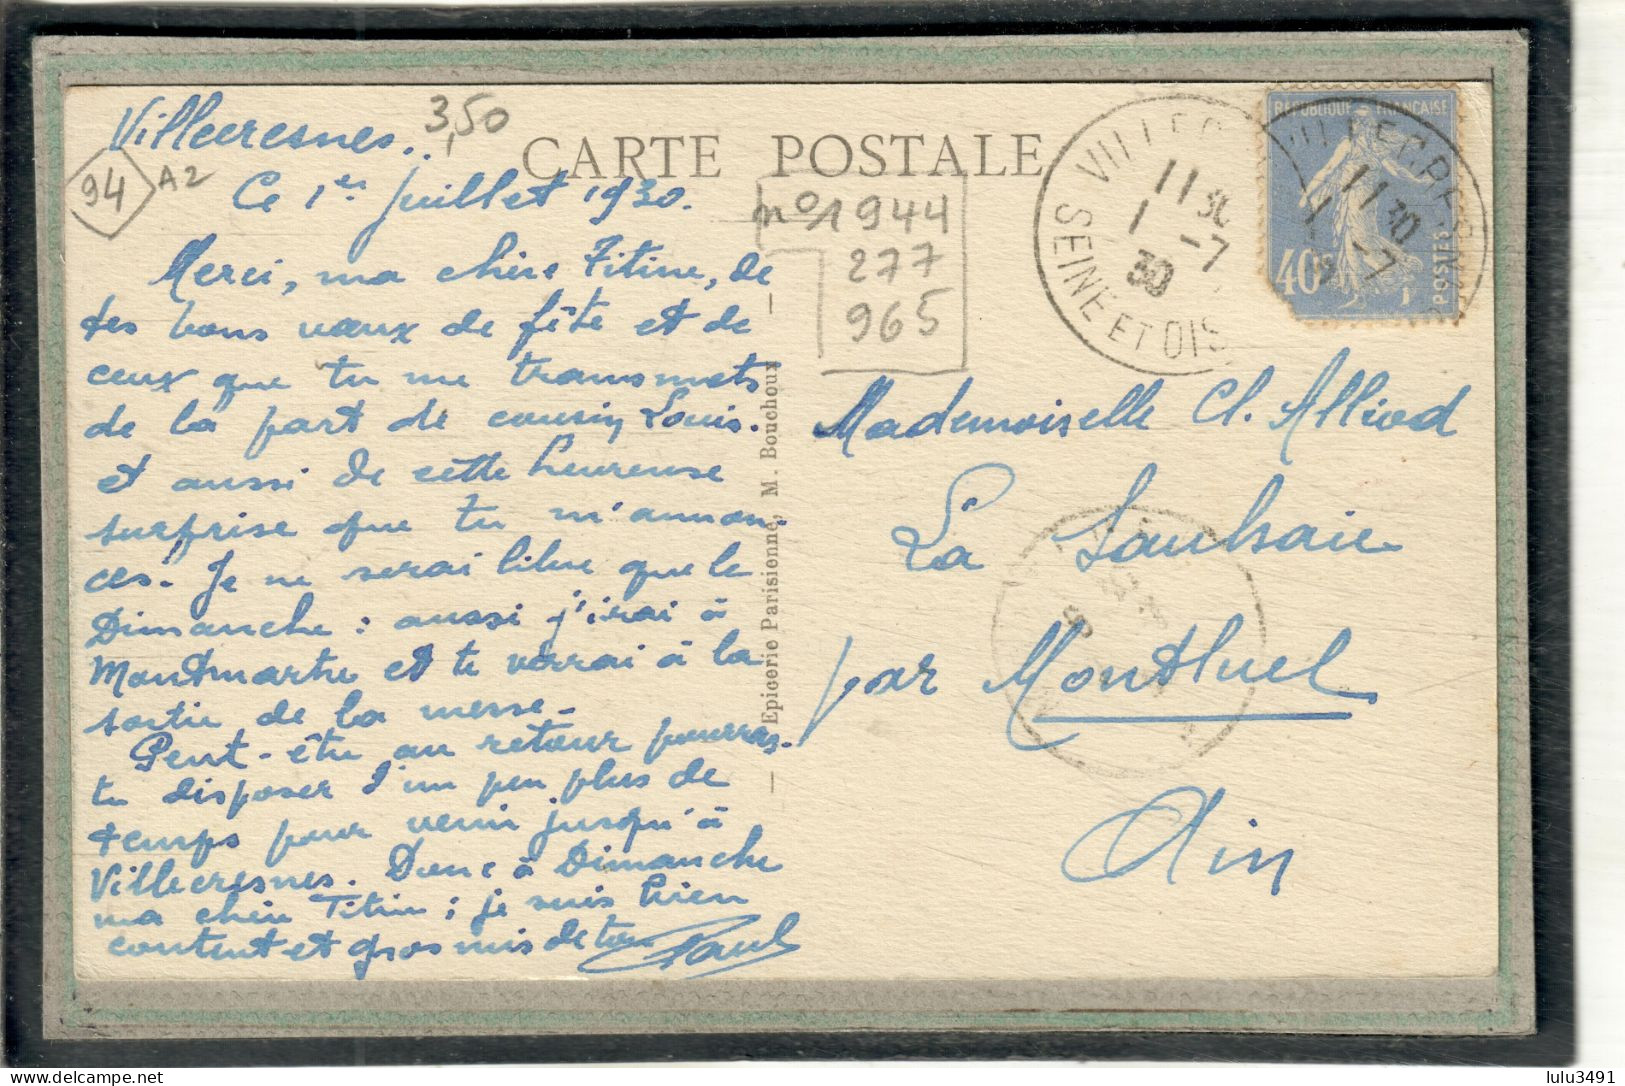 Villecresnes.
3,50
94
A2
CARTE POSTALE
Ce 1er Juillet 1930.
Merci, ma chère Titine, de
tes bons vœux de fête et de
ceux que tu me transmets
de la part de cousin Louis.
et aussi de cette heureuse
surprise que tu m'annon-
ces. Je ne serai libre que le
Dimanche : aussi j'irai à
Montmartre et te verrai à la
sortie de la messe.
Peut-être au retour pourras-
tu disposer d'un peu plus de
temps pour venir jusqu'à
Villecresnes. Donc à Dimanche
ma chère Titine ; je suis bien
content et gros mis de ton
Paul
Epicerie Parisienne, M. Bouchoux
n° 1944
277
965
VILLEC
SEINE ET OIS
11 30
1 -7
30
VILLECRESN
11 30
1 -7
REPUBLIQUE FRANÇAISE
40c
POSTES
Mademoiselle Cl. Alliod
La Saulsaie
par Montluel
Ain
lulu3491